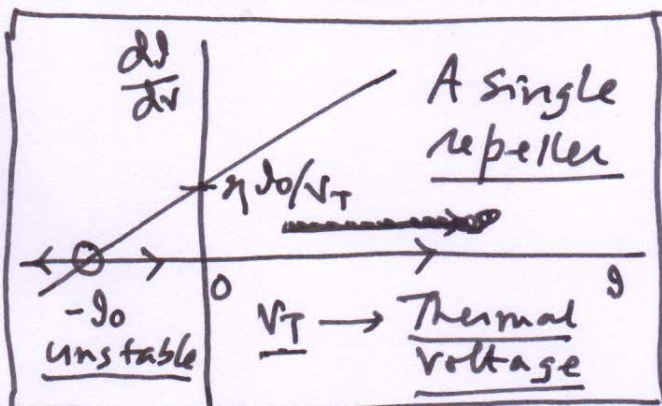 dI/dv
A single
repeller
ηI₀/V_T
0
I
-I₀
unstable
V_T → Thermal
voltage